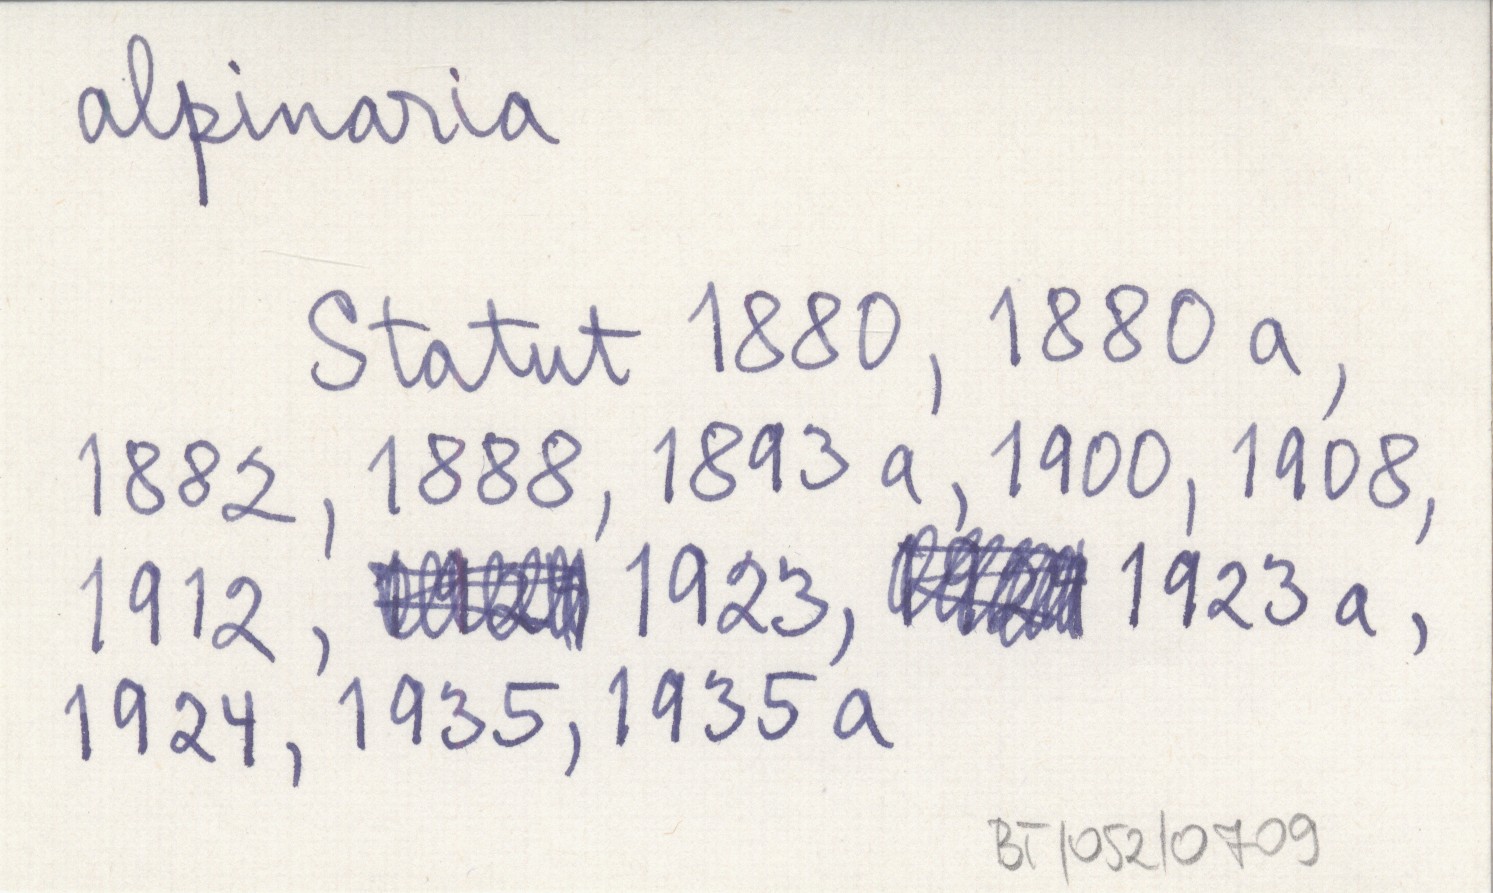 alpinaria
Statut 1880, 1880 a,
1882, 1888, 1893 a, 1900, 1908,
1912, 1923, 1923 a,
1924, 1935, 1935 a
BT/052/0709